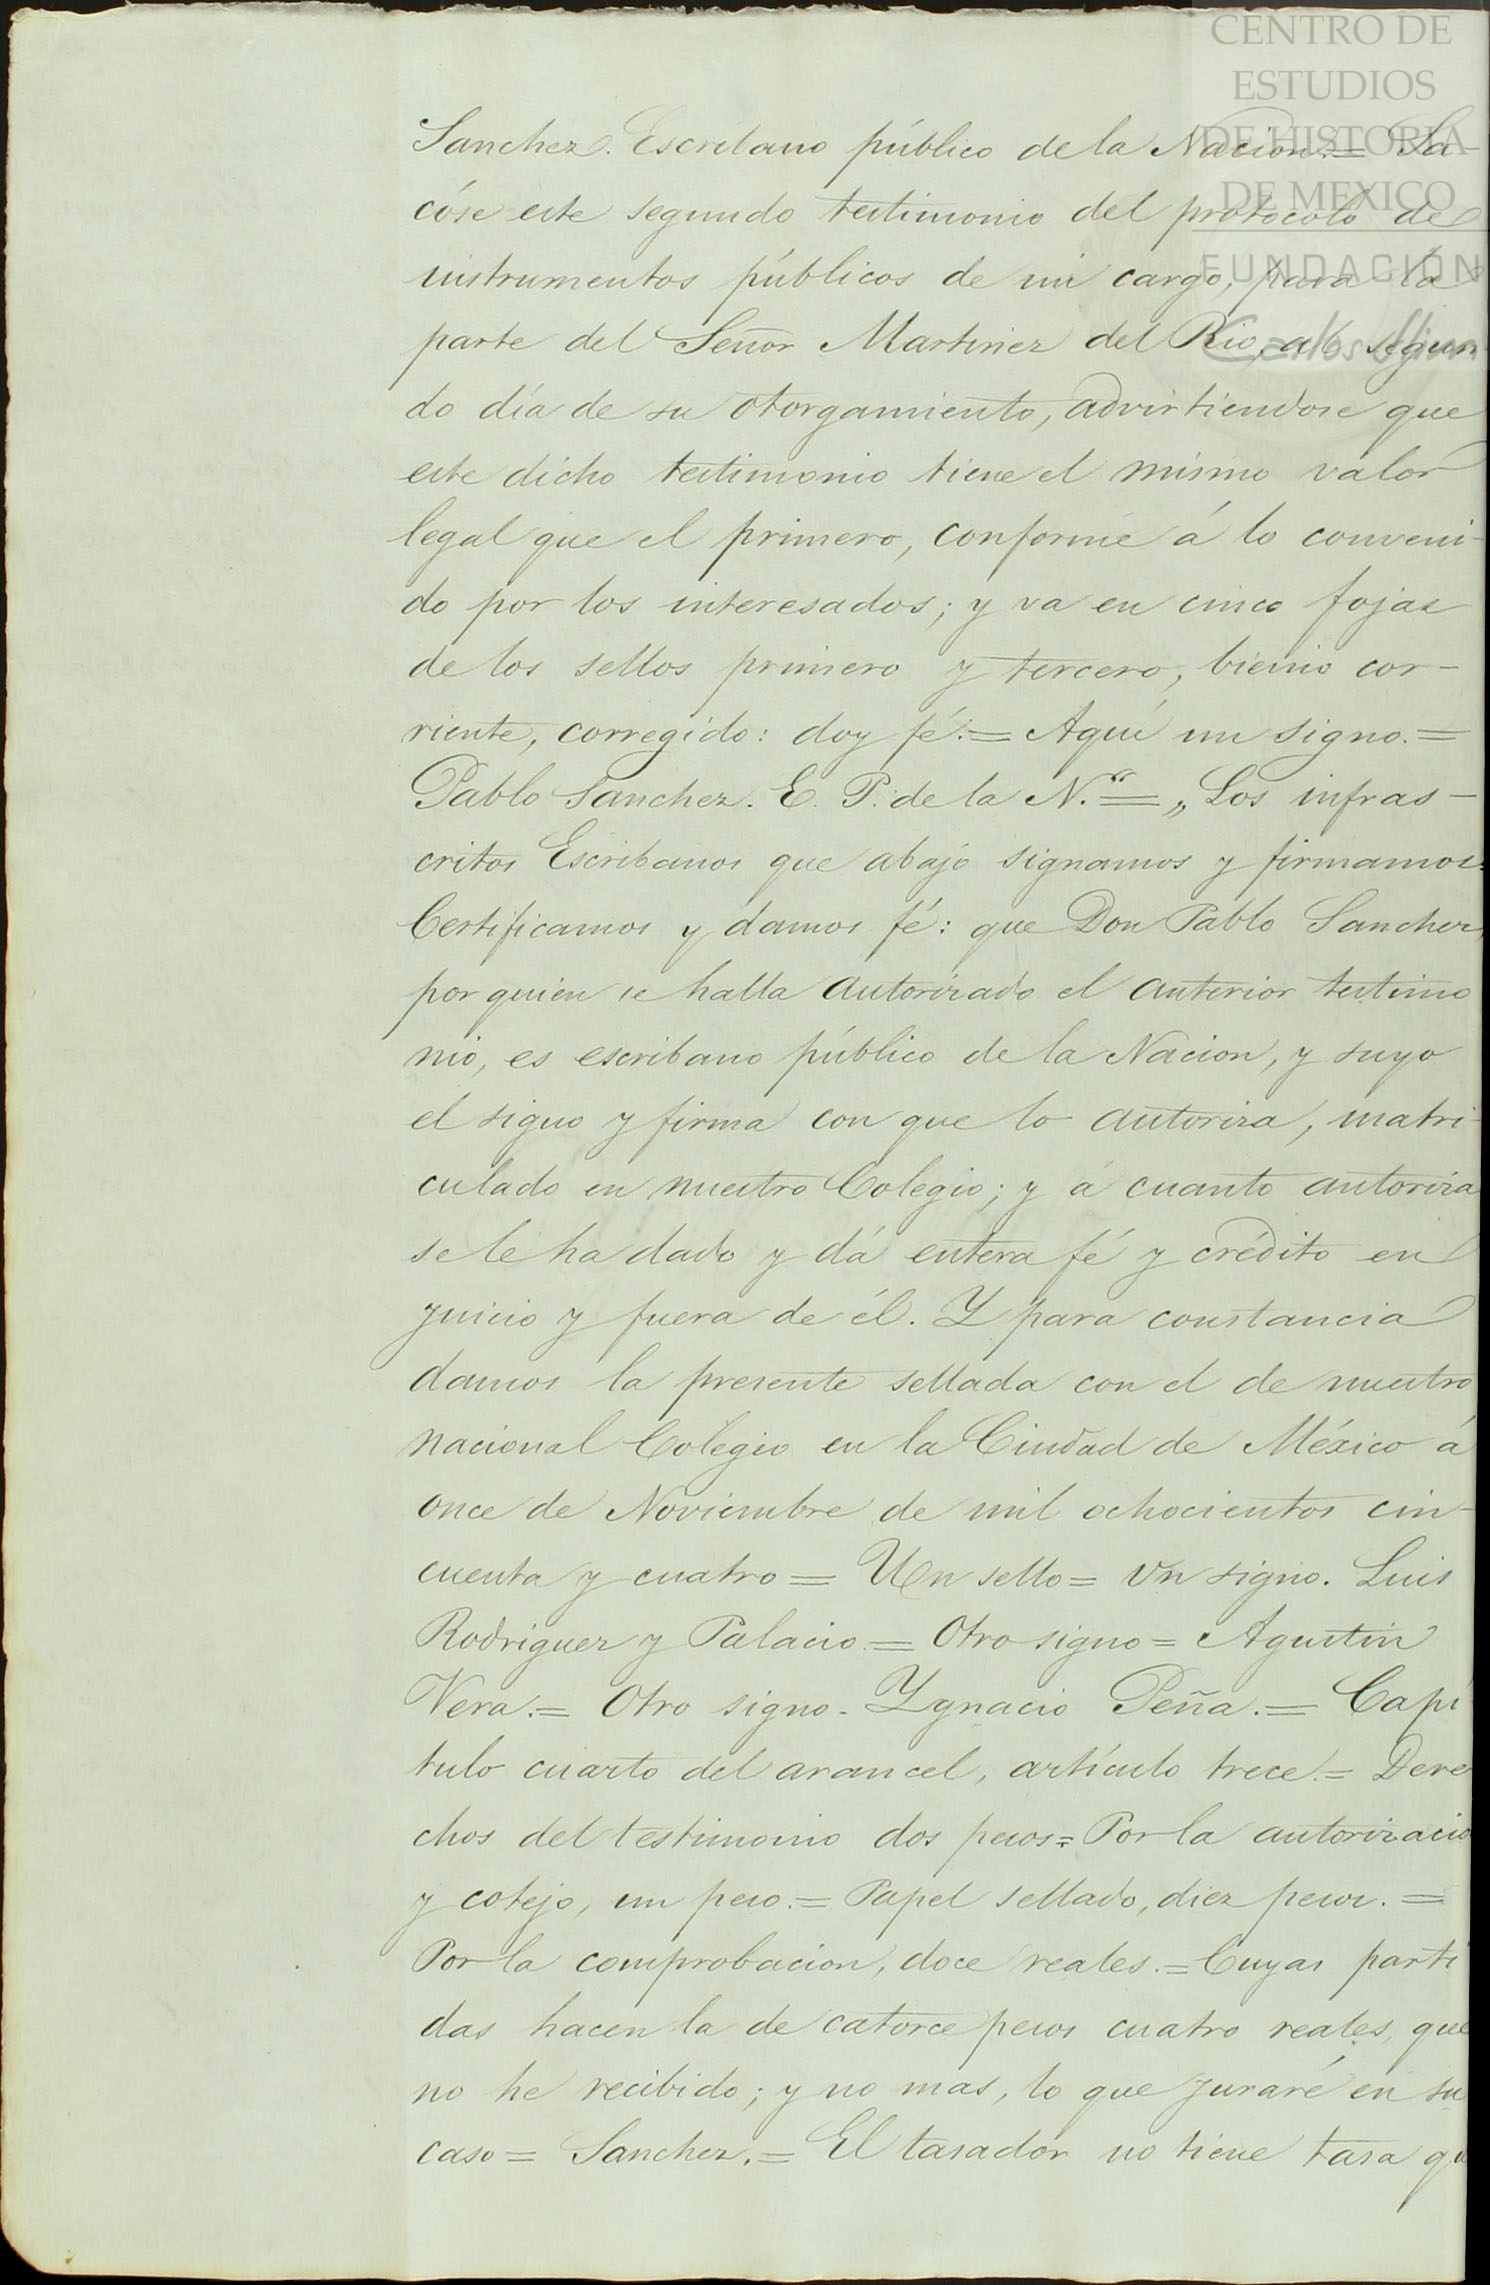 CENTRO DE
ESTUDIOS
DE HISTORIA
DE MEXICO
FUNDACION
Carlos Slim
Sanchez. Escribano público de la Nacion.= Sa-
cóse este segundo testimonio del protocolo de
instrumentos públicos de mi cargo, para la
parte del Señor Martinez del Rio, al segun
do día de su otorgamiento, advirtiendose que
este dicho testimonio tiene el mismo valor
legal que el primero, conforme á lo conveni-
do por los interesados; y va en cinco fojas
de los sellos primero y tercero, bienio cor-
riente, corregido: doy fé.= Aquí un signo.=
Pablo Sanchez. E. P. de la N.ⁿ= „Los infras-
critos Escribanos que abajo signamos y firmamos.
Certificamos y damos fé: que Don Pablo Sanchez,
por quien se halla autorizado el anterior testimo
nio, es escribano público de la Nacion, y suyo
el signo y firma con que lo autoriza, matri-
culado en nuestro Colegio; y á cuanto autoriza
se le ha dado y dá entera fé y crédito en
juicio y fuera de él. Y para constancia
damos la presente sellada con el de nuestro
nacional Colegio en la Ciudad de México á
once de Noviembre de mil ochocientos cin-
cuenta y cuatro= Un sello= Un signo. Luis
Rodriguez y Palacio.= Otro signo= Agustin
Vera.= Otro signo- Ygnacio Peña.= Capi
tulo cuarto del arancel, artículo trece.= Dere
chos del testimonio dos pesos= Por la autorizacio
y cotejo, un peso.= Papel sellado, diez pesos.=
Por la comprobacion, doce reales.= Cuyas parti
das hacen la de catorce pesos cuatro reales, que
no he recibido; y no mas, lo que juraré en su
caso= Sanchez.= El tasador no tiene tasa qu